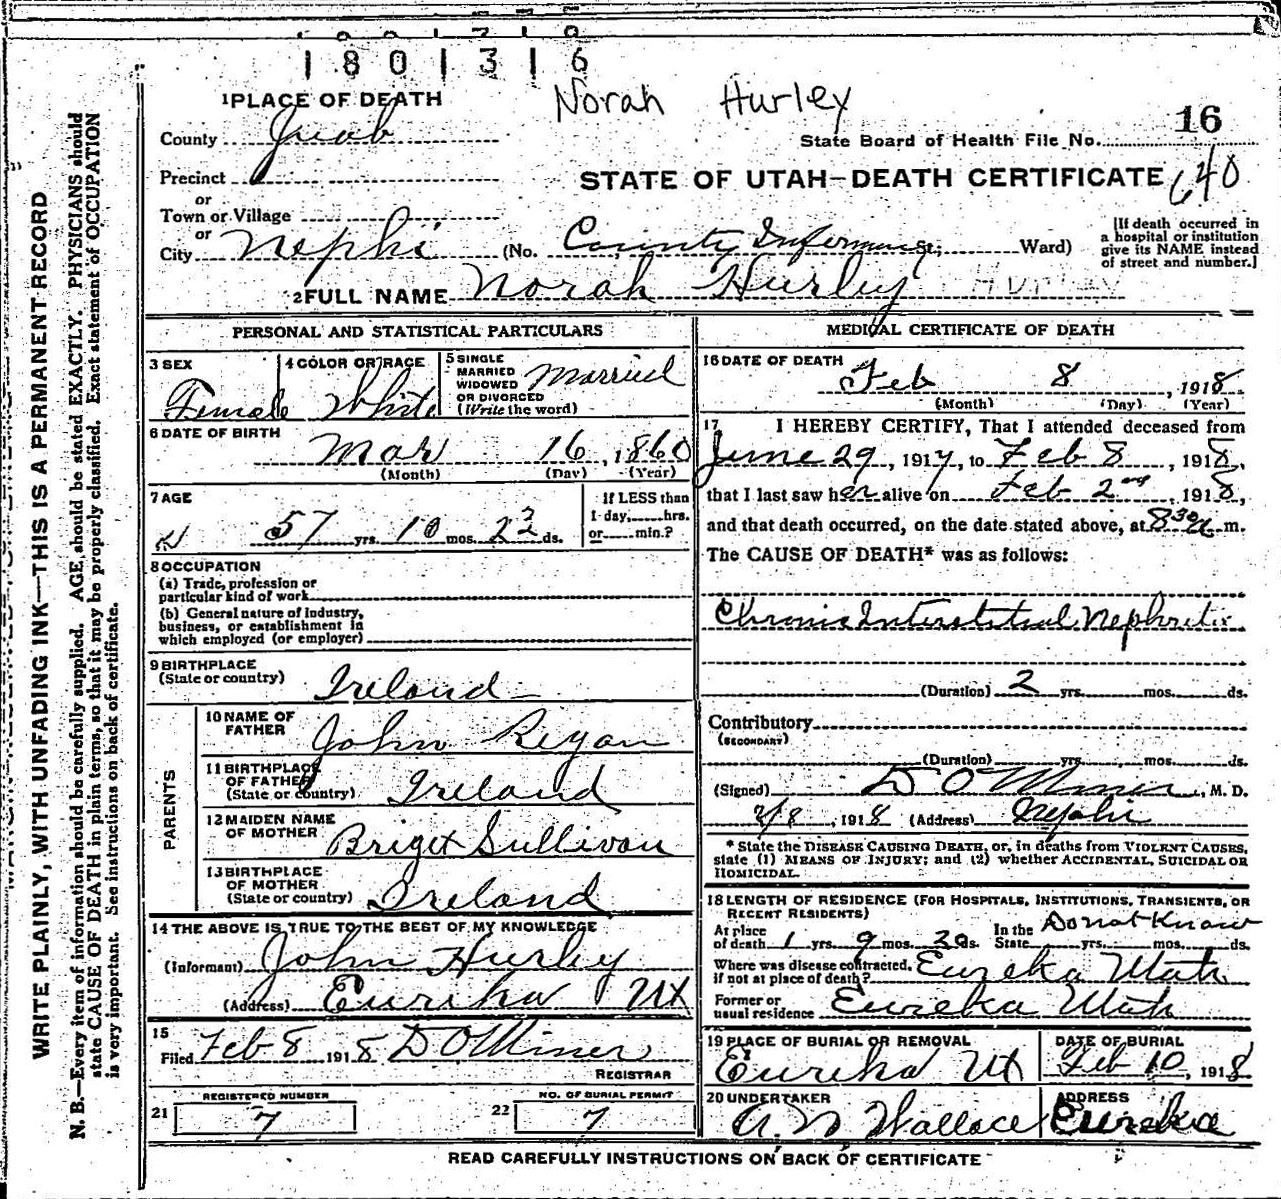 1801316
Norah Hurley
1 PLACE OF DEATH
County Juab
State Board of Health File No. 16
Precinct
STATE OF UTAH—DEATH CERTIFICATE 640
or
Town or Village
or
City Nephi (No. County Infirmary St; Ward)
[If death occurred in
a hospital or institution
give its NAME instead
of street and number.]
2 FULL NAME Norah Hurley HURLEY
PERSONAL AND STATISTICAL PARTICULARS
3 SEX Female
4 COLOR OR RACE White
5 SINGLE
MARRIED
WIDOWED
OR DIVORCED
(Write the word) Married
6 DATE OF BIRTH
Mar 16, 1860
(Month) (Day) (Year)
7 AGE
57 yrs. 10 mos. 23 ds.
If LESS than
1 day,......hrs.
or......min.?
8 OCCUPATION
(a) Trade, profession or
particular kind of work
(b) General nature of industry,
business, or establishment in
which employed (or employer)
9 BIRTHPLACE
(State or country) Ireland
PARENTS
10 NAME OF
FATHER John Regan
11 BIRTHPLACE
OF FATHER
(State or country) Ireland
12 MAIDEN NAME
OF MOTHER Briget Sullivan
13 BIRTHPLACE
OF MOTHER
(State or country) Ireland
14 THE ABOVE IS TRUE TO THE BEST OF MY KNOWLEDGE
(Informant) John Hurley
(Address) Eureka Ut
15
Filed Feb 8 1918 D O Miner
REGISTRAR
REGISTERED NUMBER
21 7
NO. OF BURIAL PERMIT
22 7
MEDICAL CERTIFICATE OF DEATH
16 DATE OF DEATH
Feb 8, 1918
(Month) (Day) (Year)
17 I HEREBY CERTIFY, That I attended deceased from
June 29, 1917, to Feb 8, 1918,
that I last saw her alive on Feb 2nd, 1918,
and that death occurred, on the date stated above, at 8 30 a m.
The CAUSE OF DEATH* was as follows:
Chronic Interstitial Nephritis
(Duration) 2 yrs. mos. ds.
Contributory
(SECONDARY)
(Duration) yrs. mos. ds.
(Signed) D O Miner, M. D.
2/8, 1918 (Address) Nephi
* State the DISEASE CAUSING DEATH, or, in deaths from VIOLENT CAUSES,
state (1) MEANS OF INJURY; and (2) whether ACCIDENTAL, SUICIDAL OR
HOMICIDAL.
18 LENGTH OF RESIDENCE (FOR HOSPITALS, INSTITUTIONS, TRANSIENTS, OR
RECENT RESIDENTS)
At place
of death 1 yrs. 9 mos. 20 ds.
In the
State Do not Know yrs. mos. ds.
Where was disease contracted,
if not at place of death? Eureka Utah
Former or
usual residence Eureka Utah
19 PLACE OF BURIAL OR REMOVAL
Eureka Ut
DATE OF BURIAL
Feb 10, 1918
20 UNDERTAKER
A. N Wallace
ADDRESS
Eureka
READ CAREFULLY INSTRUCTIONS ON BACK OF CERTIFICATE
WRITE PLAINLY, WITH UNFADING INK—THIS IS A PERMANENT RECORD
N. B.—Every item of information should be carefully supplied. AGE should be stated EXACTLY. PHYSICIANS should
state CAUSE OF DEATH in plain terms, so that it may be properly classified. Exact statement of OCCUPATION
is very important. See instructions on back of certificate.